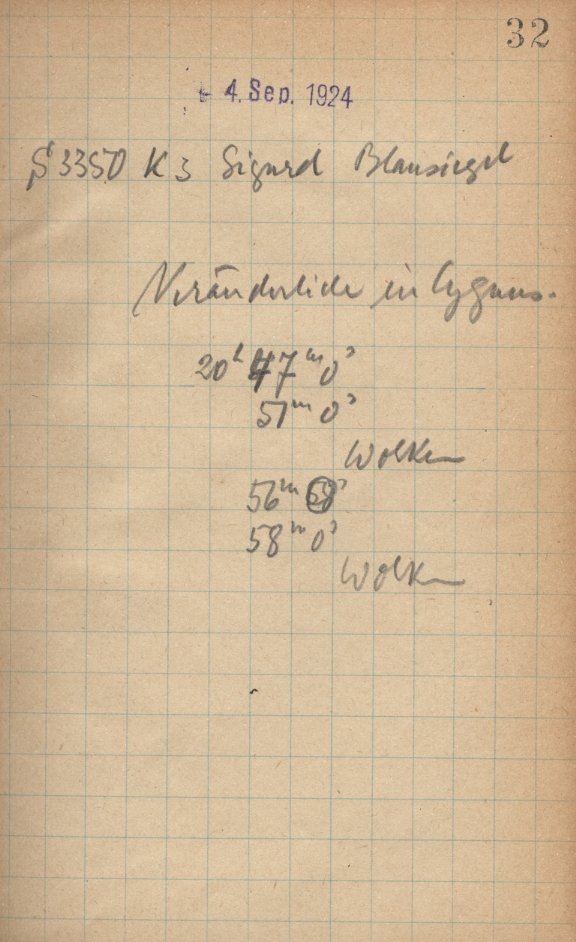 32
4. Sep. 1924
S 3350 K3 Sigurd Blausiegel
Veränderliche in Cygnus.
20ʰ 47ᵐ 0ˢ
51ᵐ 0ˢ
Wolken
56ᵐ
58ᵐ 0ˢ
Wolken